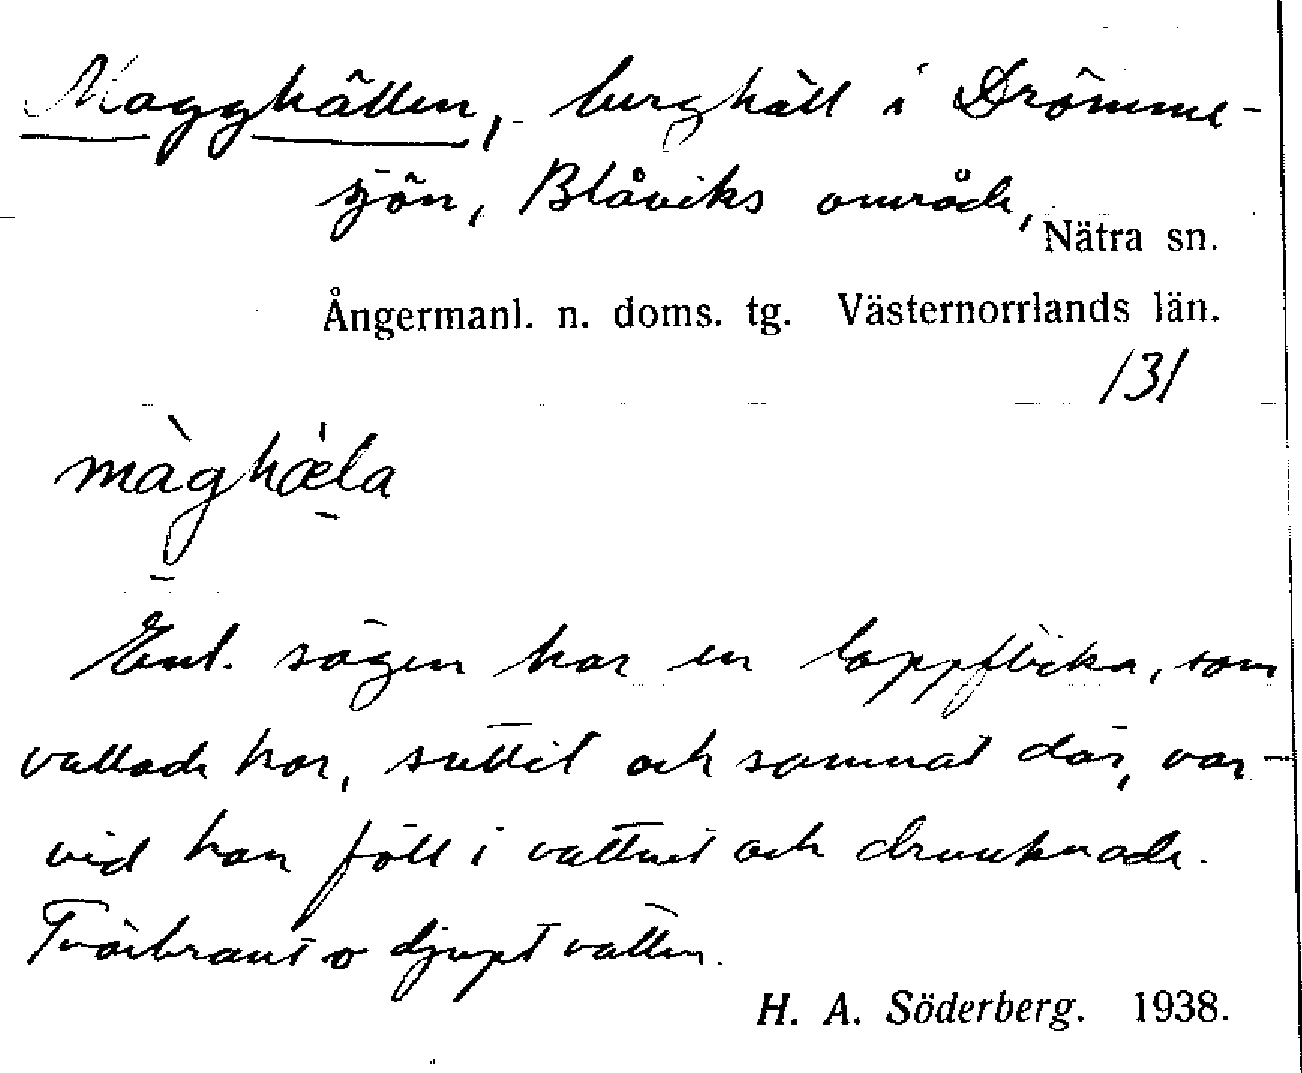 Magghällen, berghäll i Drömme-
sjön, Blåviks område,
Nätra sn.
Ångermanl. n. doms. tg. Västernorrlands län.
131
màghæ̀la
Enl. sägen har en lappflicka, som
vallade här, suttit och somnat där, var-
vid hon föll i vattnet och drunknade.
Tvärbrant o djupt vatten.
H. A. Söderberg. 1938.